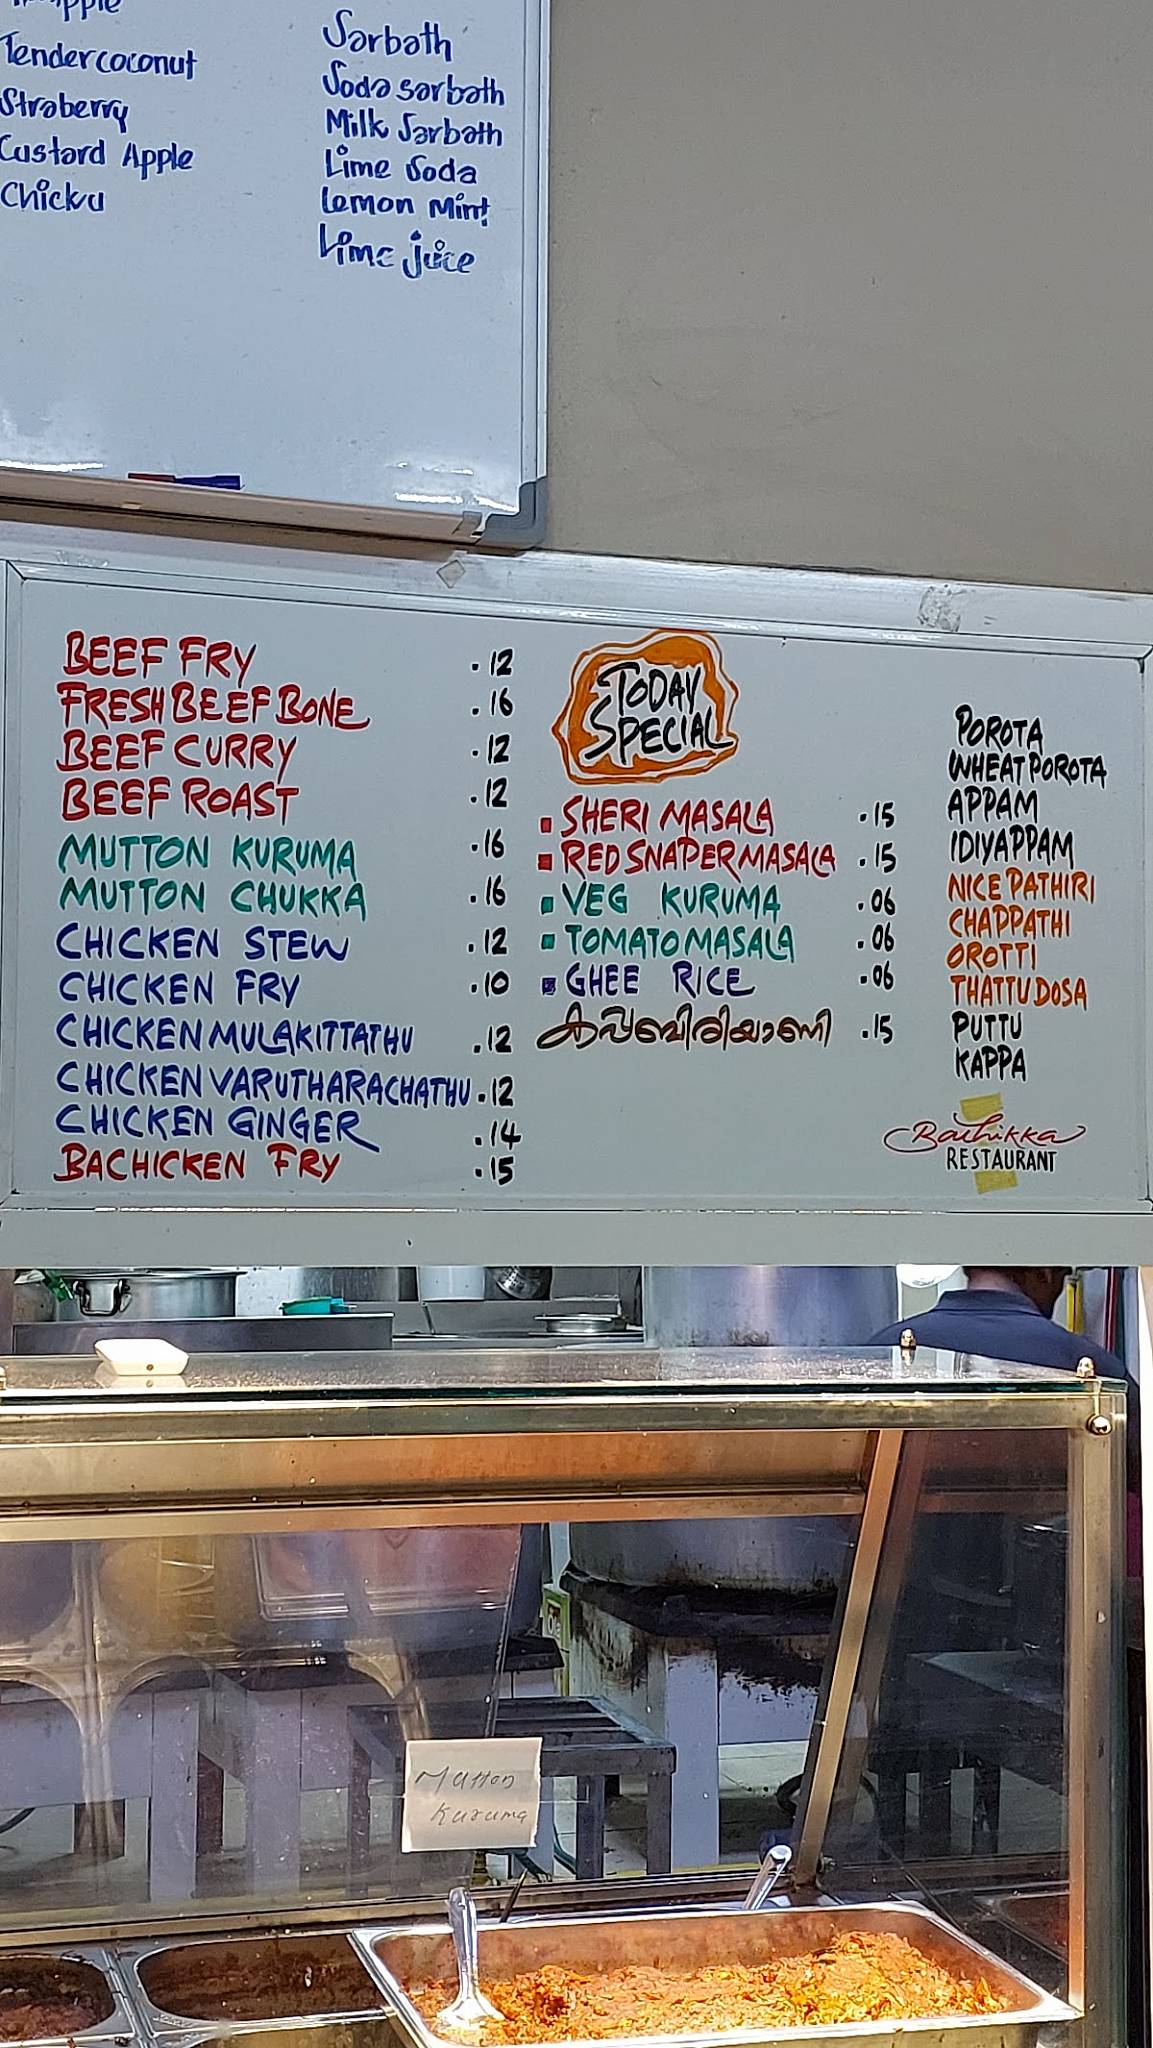 Tendercoconut
Straberry
Custard Apple
Chicku
Sarbath
Soda sarbath
Milk Sarbath
Lime Soda
Lemon Mint
Lime juice
BEEF FRY .12
FRESH BEEF BONE .16
BEEF CURRY .12
BEEF ROAST .12
MUTTON KURUMA .16
MUTTON CHUKKA .16
CHICKEN STEW .12
CHICKEN FRY .10
CHICKEN MULAKITTATHU .12
CHICKEN VARUTHARACHATHU .12
CHICKEN GINGER .14
BACHICKEN FRY .15
TODAY
SPECIAL
SHERI MASALA .15
RED SNAPER MASALA .15
VEG KURUMA .06
TOMATO MASALA .06
GHEE RICE .06
കപ്പബിരിയാണി .15
POROTA
WHEAT POROTA
APPAM
IDIYAPPAM
NICE PATHIRI
CHAPPATHI
OROTTI
THATTU DOSA
PUTTU
KAPPA
Bachikka
RESTAURANT
Mutton
Kuruma